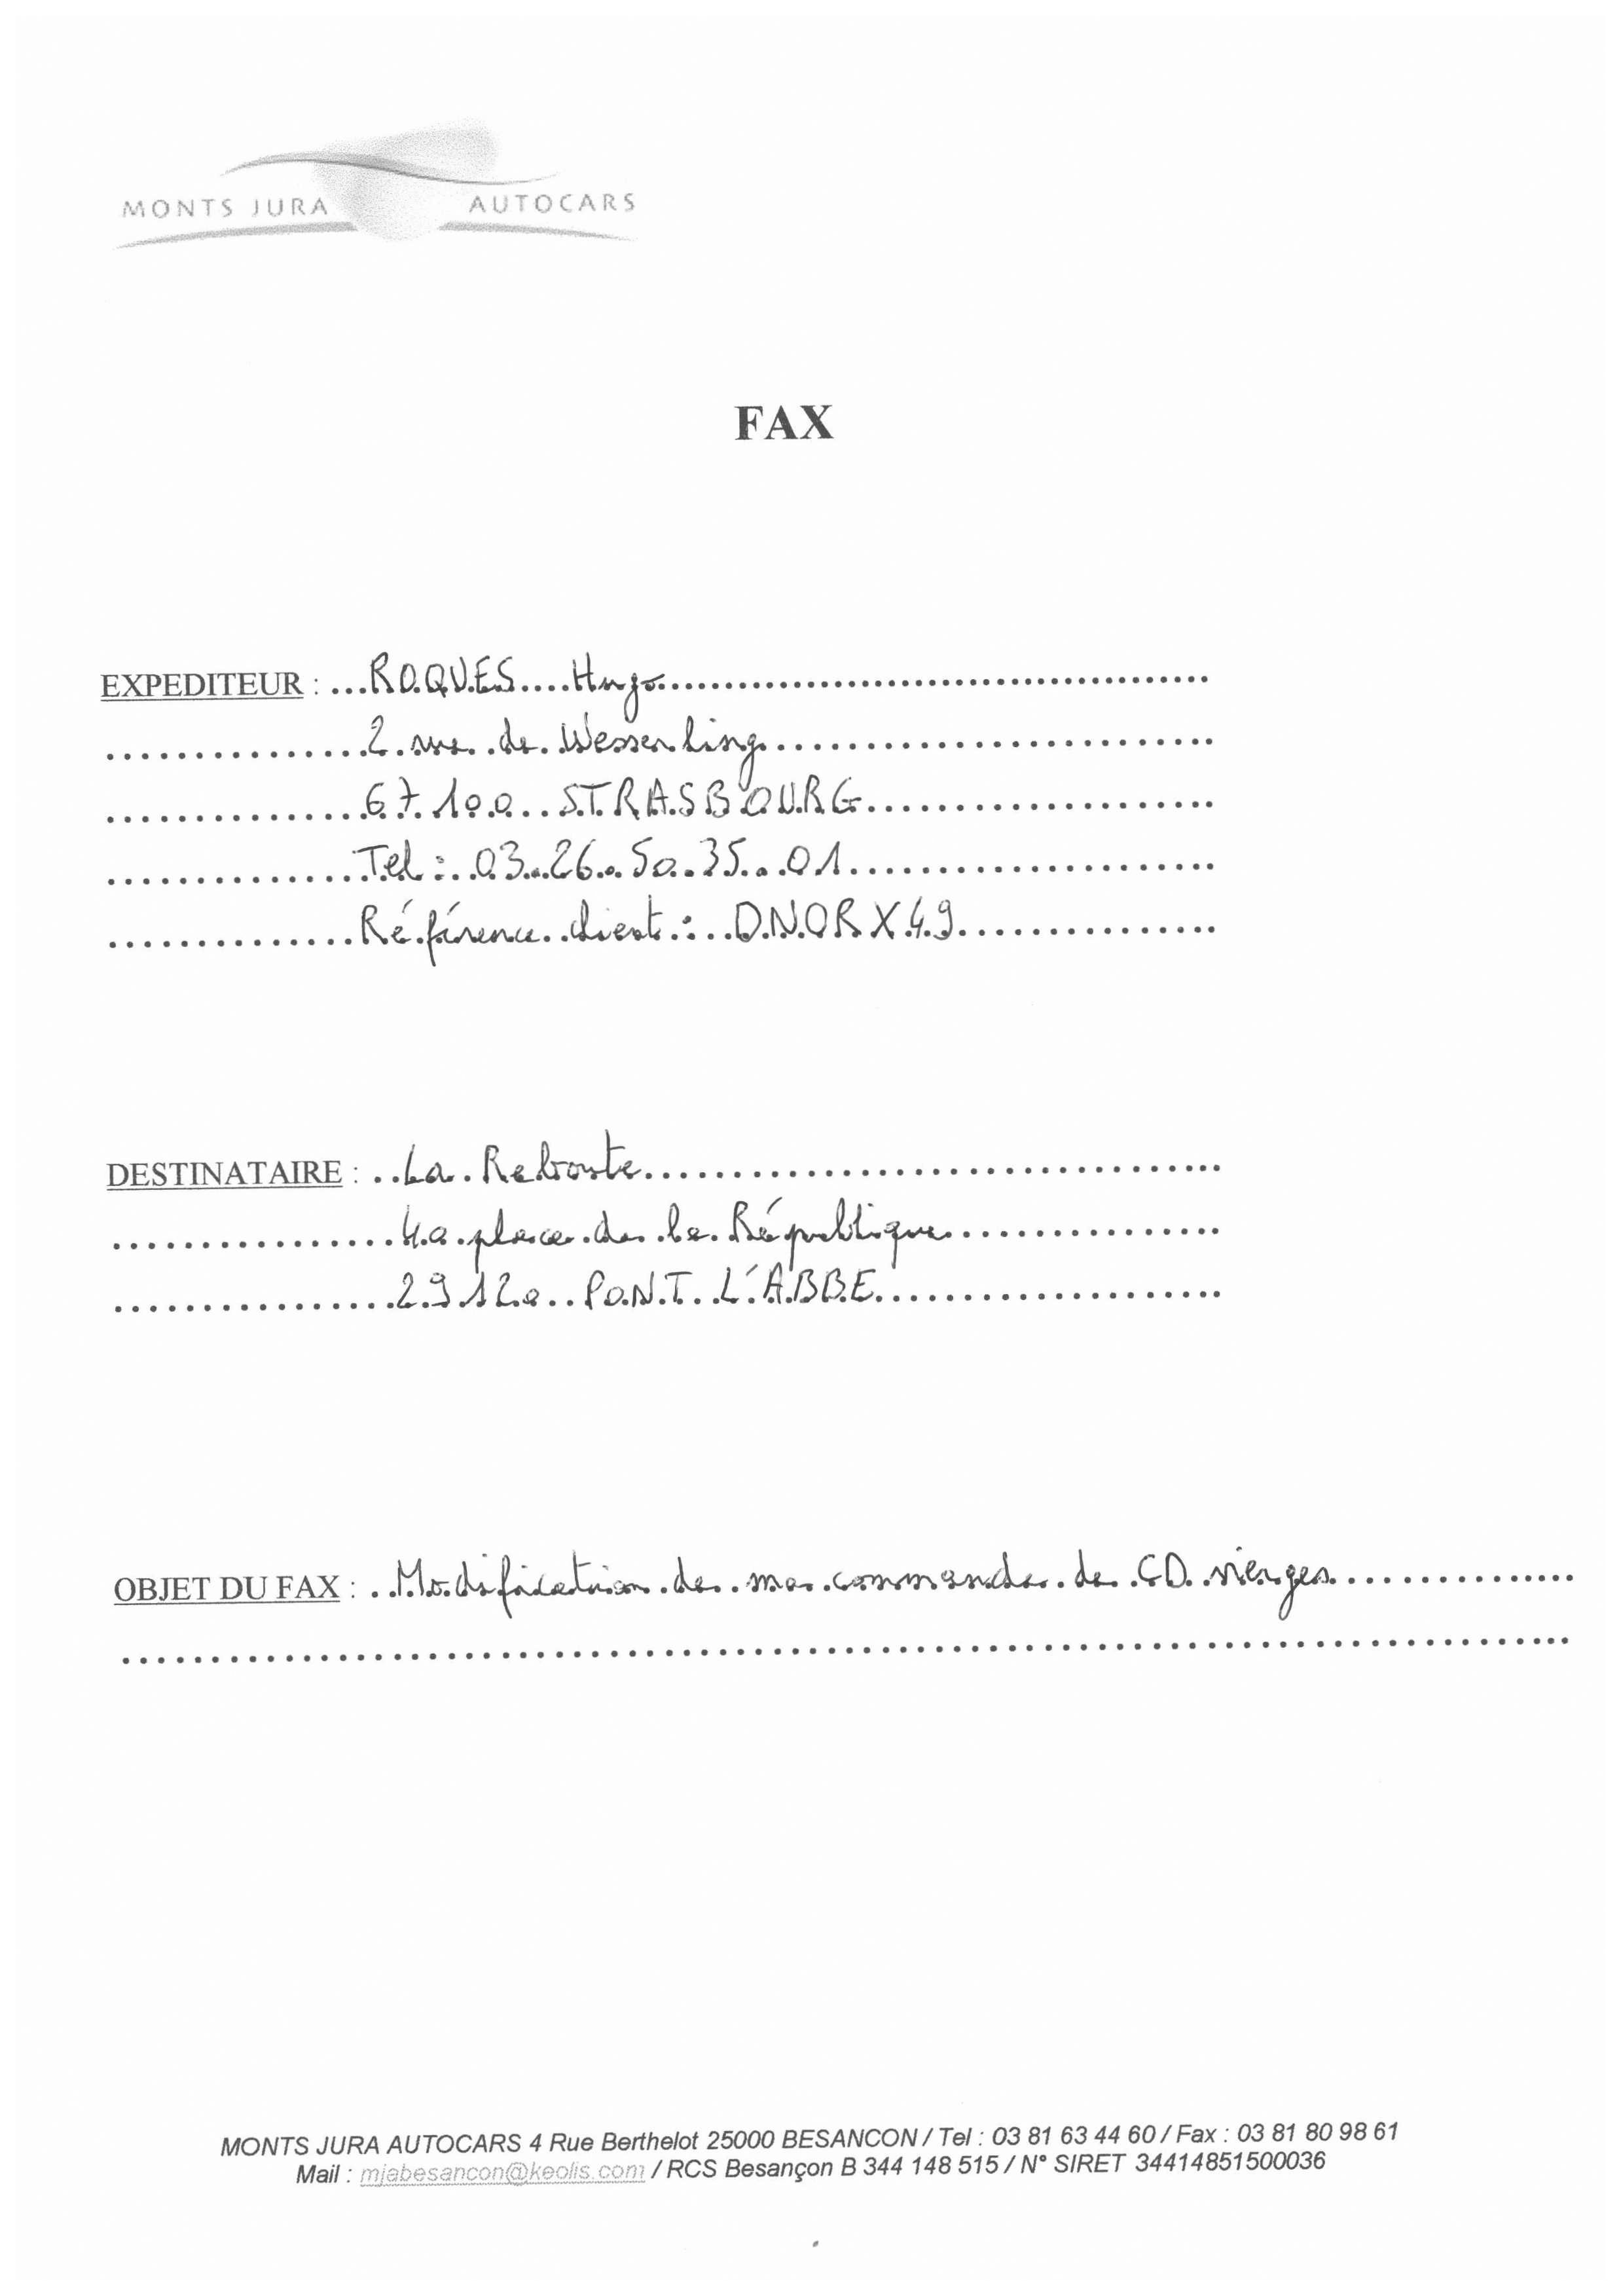 MONTS JURA AUTOCARS
FAX
EXPEDITEUR : ROQUES Hugo
2 rue de Wesserling
67100 STRASBOURG
Tel : 03.26.50.35.01
Référence client : DNORX49
DESTINATAIRE : La Reboute
40 place de la République
29120 PONT L'ABBE
OBJET DU FAX : Modification de ma commande de CD vierges
MONTS JURA AUTOCARS 4 Rue Berthelot 25000 BESANCON / Tel : 03 81 63 44 60 / Fax : 03 81 80 98 61
Mail : mjabesancon@keolis.com / RCS Besançon B 344 148 515 / N° SIRET 34414851500036